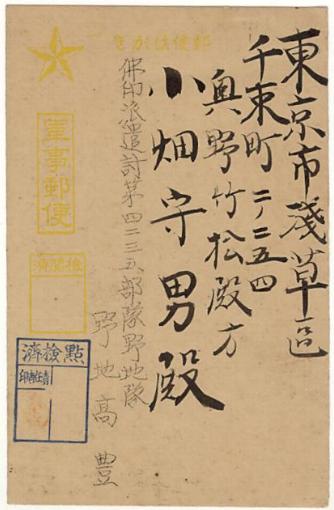 郵便はがき
東京市淺草區
千束町二ノ二五四
奥野竹松殿方
小畑守男殿
佛印派遣討第四二三五部隊野地隊
野地高豊
軍事郵便
檢閲濟
點檢濟